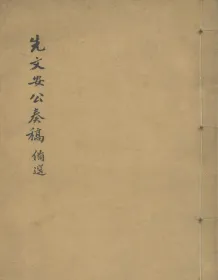 先文安公奏稿 備選